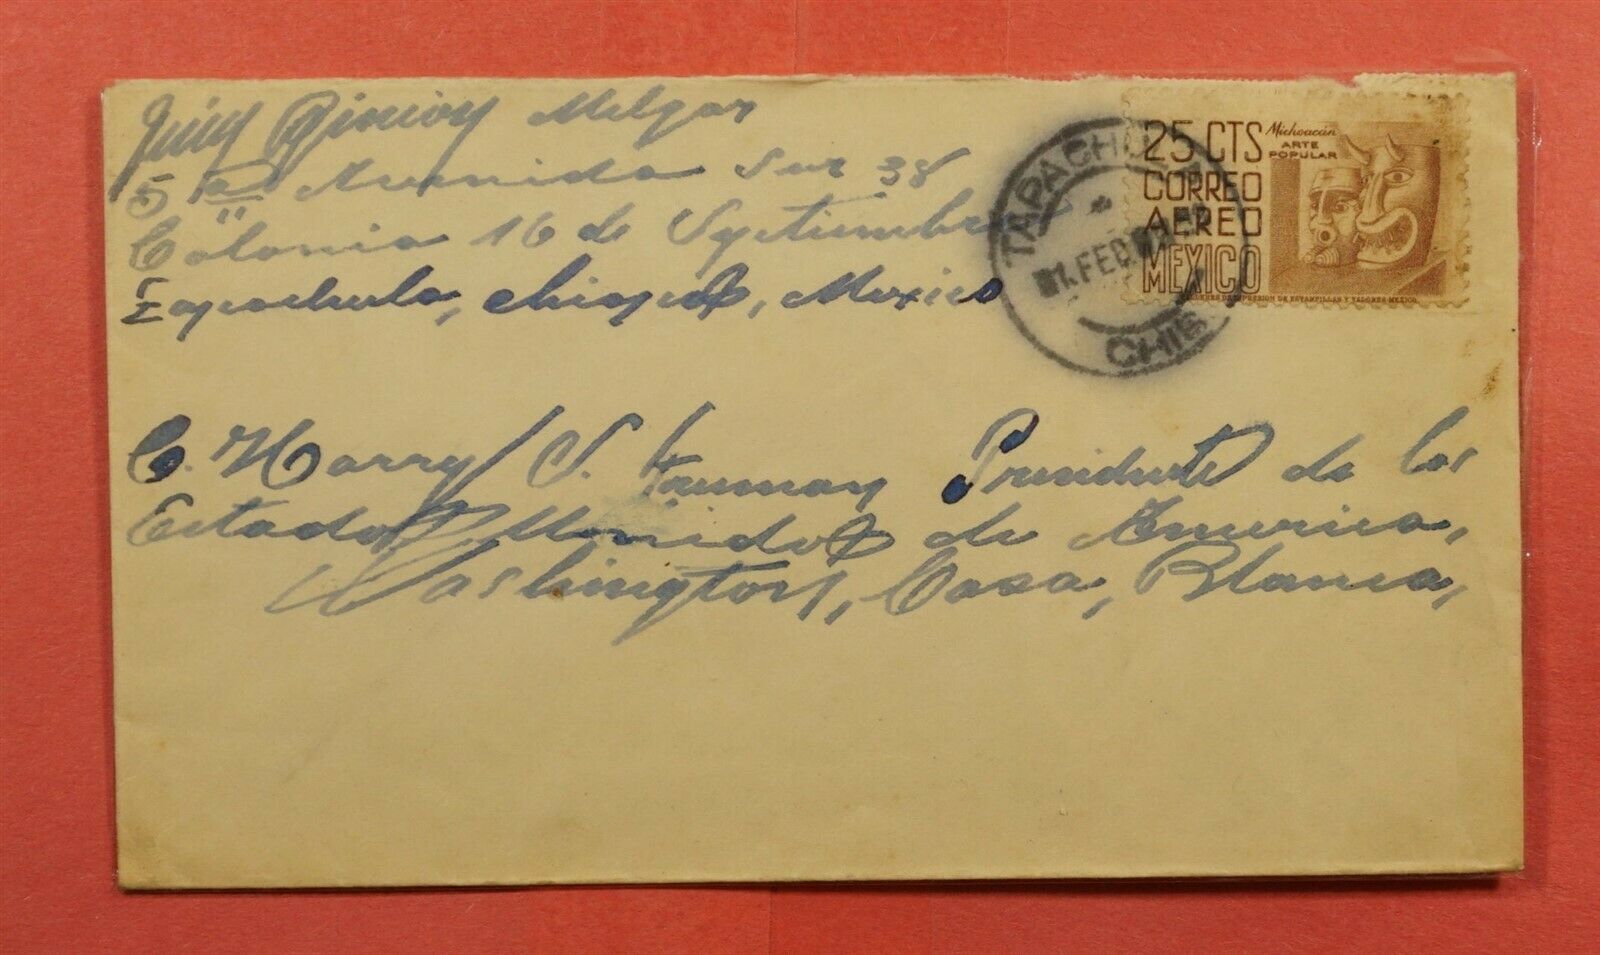 Melgar
5ª Avenida Sur 38
Colonia 16 de Septiembre
Tapachula, Chiapas, Mexico
C. Harry S. Truman Presidente de los
Estados Unidos de America,
Washington, Casa Blanca,
25 CTS
CORREO
AEREO
MEXICO
Michoacán
ARTE
POPULAR
TALLERES DE IMPRESION DE ESTAMPILLAS Y VALORES-MEXICO.
TAPACHULA
FEB
CHIS